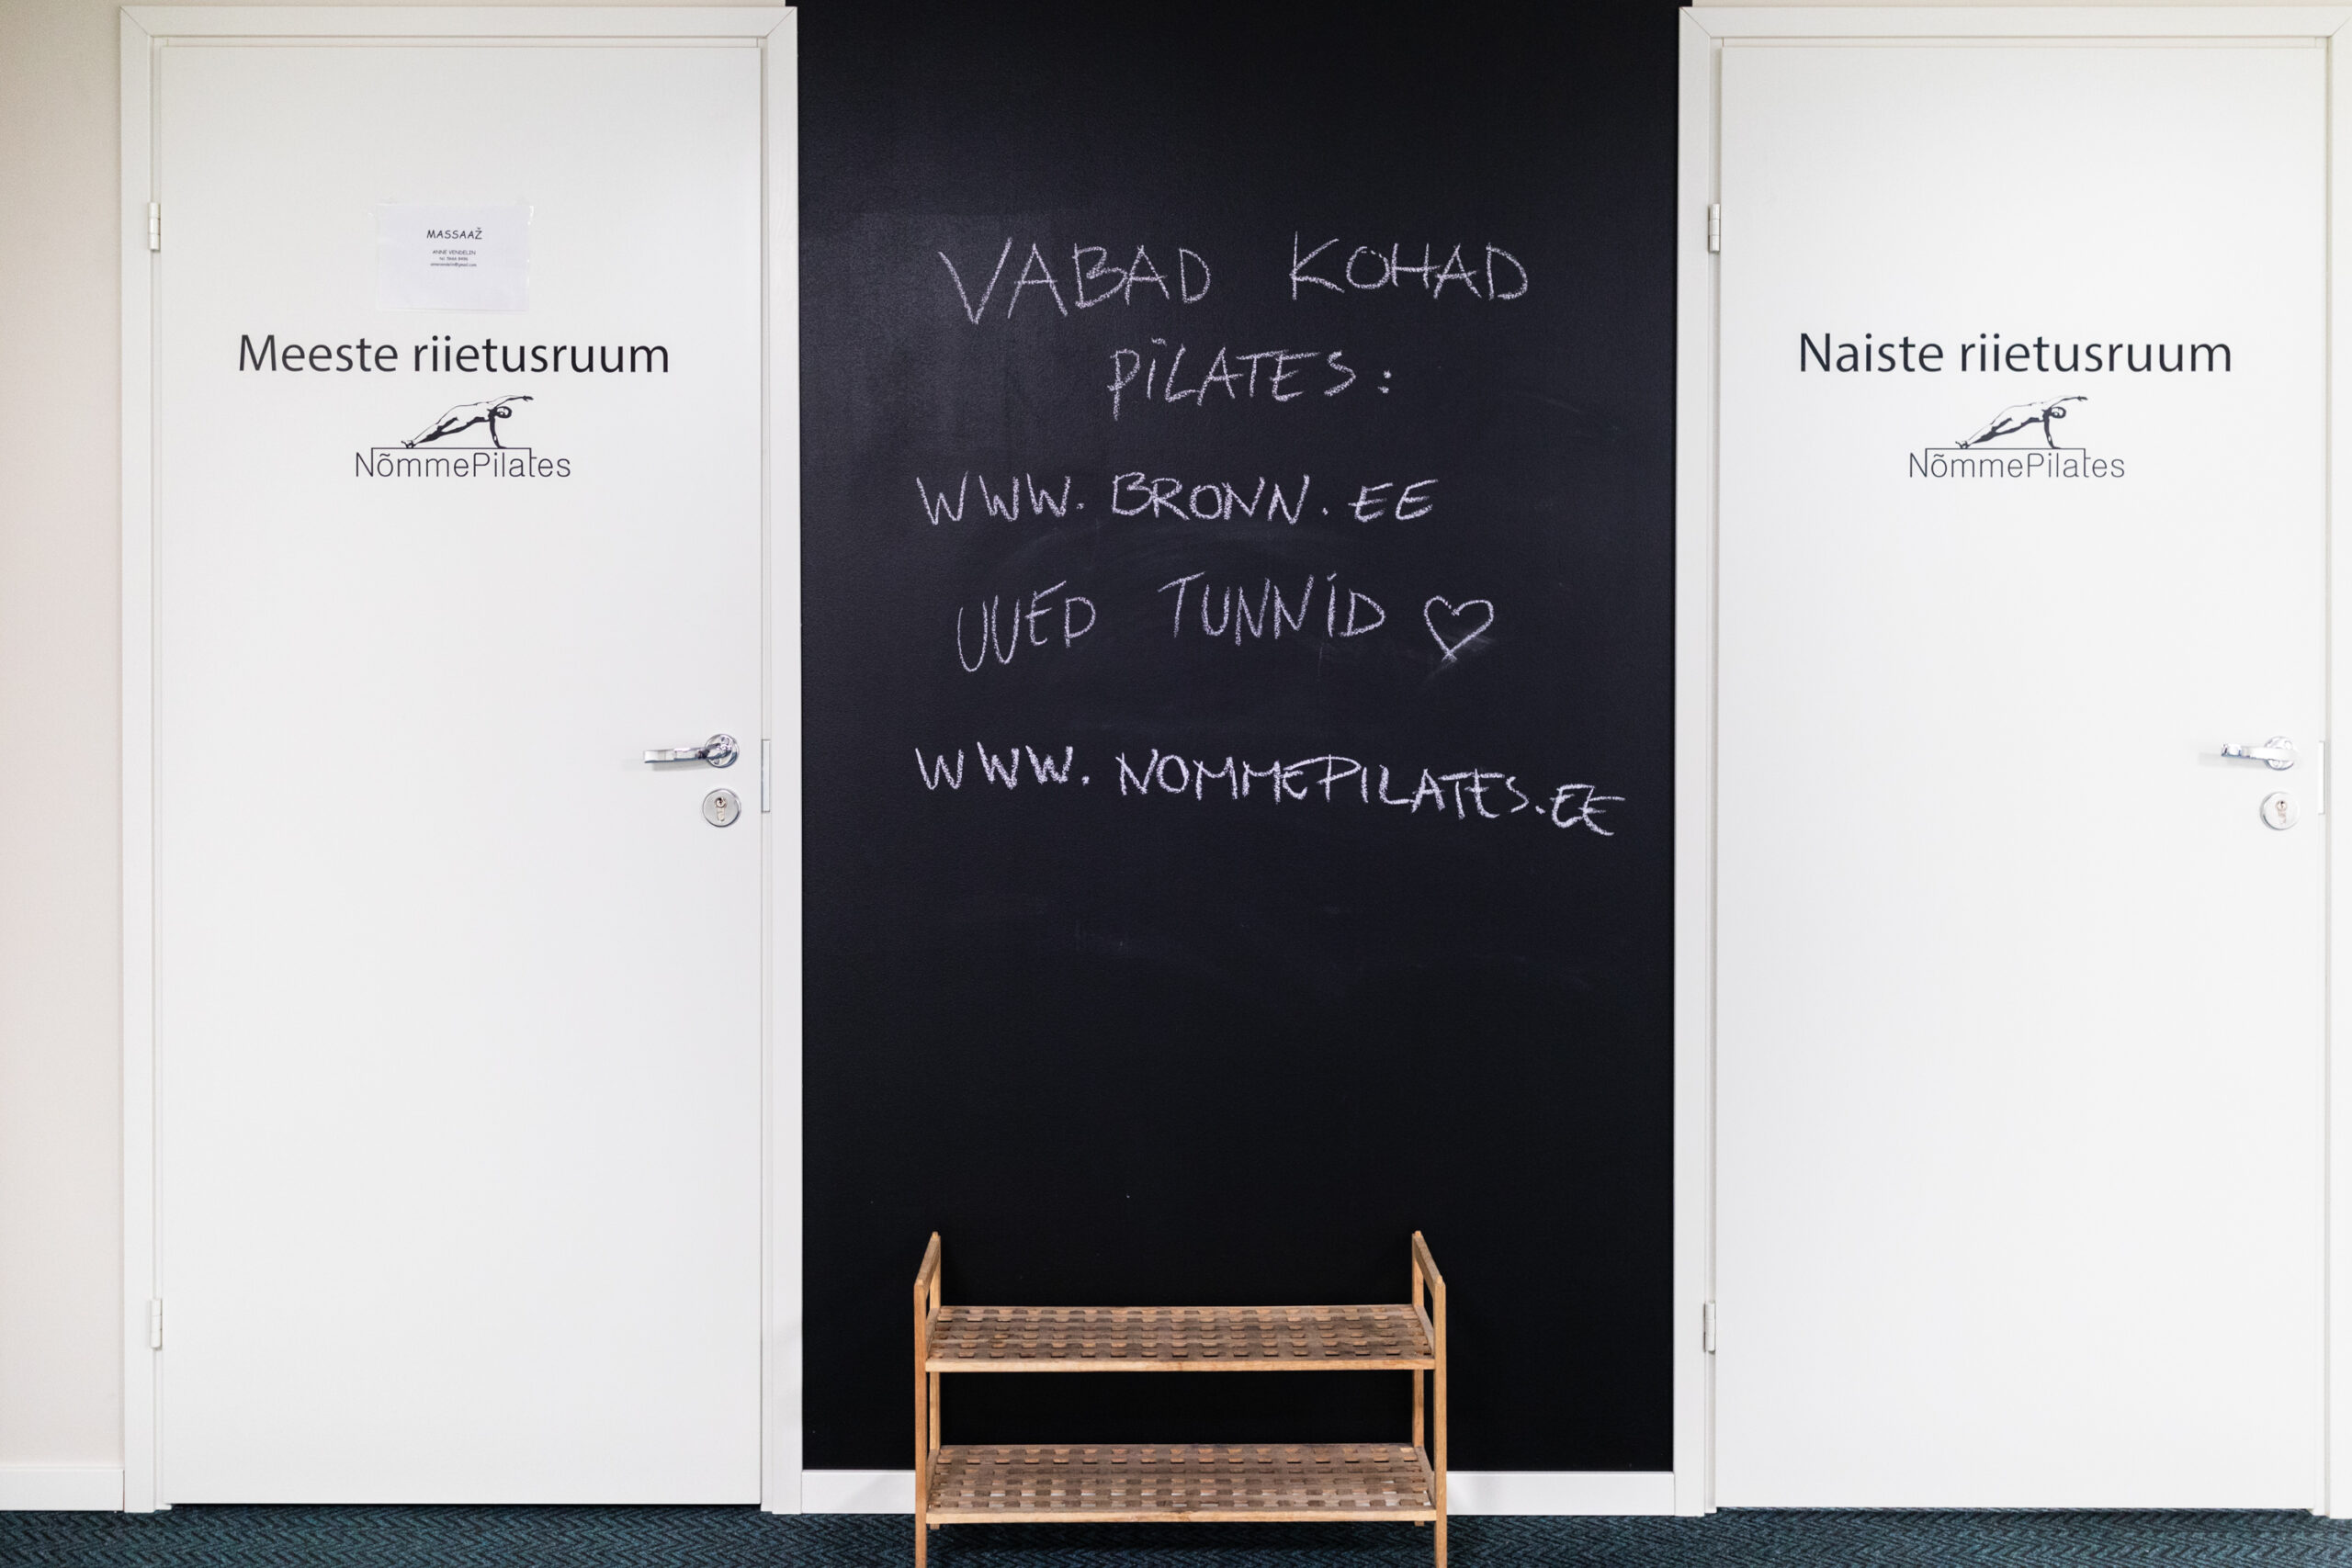 MASSAAŽ
ANNE VENDELIN
Meeste riietusruum
NõmmePilates
VABAD KOHAD
PILATES:
WWW.BRONN.EE
UUED TUNNID ♡
WWW.NOMMEPILATES.EE
Naiste riietusruum
NõmmePilates